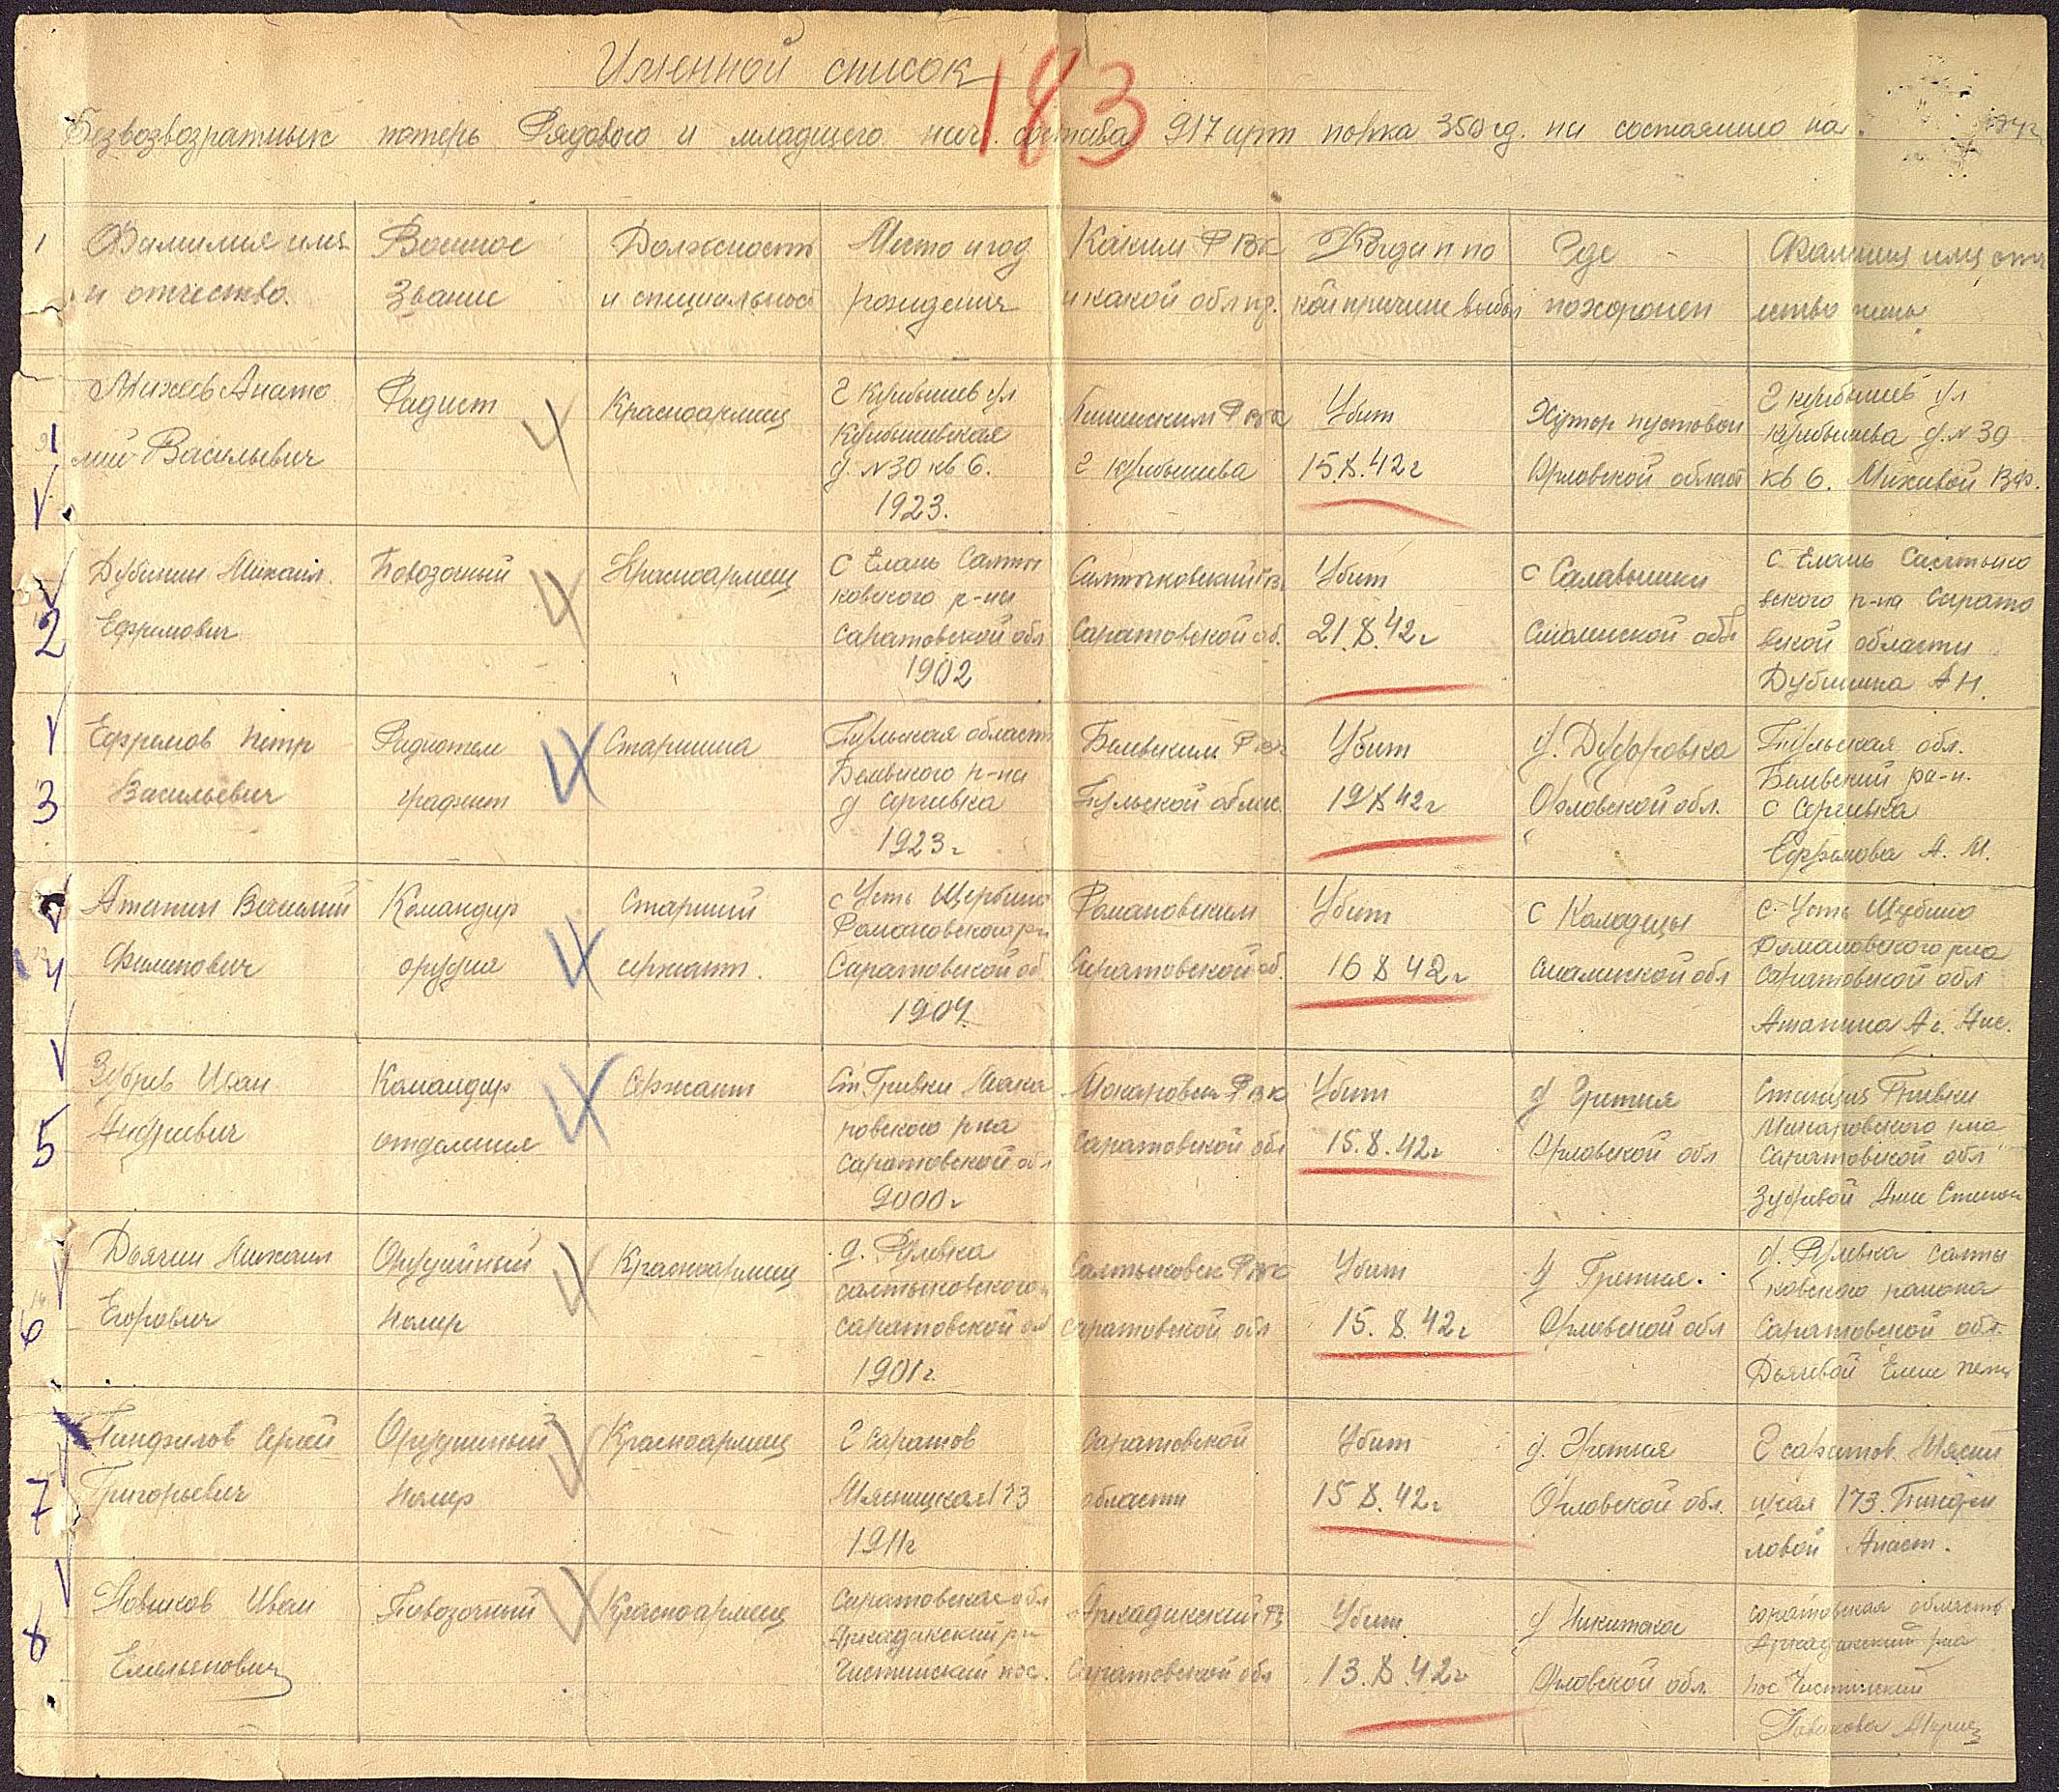 Именной список
183
Безвозвозратных потерь Рядового и младщего нач. состава 917 арт полка 350 сд. на состоянию на
1 Фамилия имя Военное Должность Место и год Каким РВК Когда и по Где Фамилия имя отч
и отчество. Звание и специальност рождения и какой обл пр. кой причине выбыл похоронен ество жены
1
Михеев Анато
лий Васильевич
Радист
Красноармеец
г Куйбышев ул
Куйбышевская
д. №30 кв 6.
1923.
РВК
г Куйбышева
Убит
15.8.42г
Хутор пустовой
Орловской област
г куйбышев ул
куйбышева д. №30
кв 6. Михевой В.Ф.
2
Дубинин Михаил.
Ефимович
Повозочный
Красноармеец
с Елань Салты
ковского р-на
Саратовской обл
1902
Салтыковский
Саратовской об.
Убит
21.8.42г
с
Смоленской обл
с. Елань Салтыко
вского р-на Сарато
вской области
Дубинина А Н.
3
Ефремов Петр
Васильевич
Радиотеле
графист
Старшина
Тульская область
Белевского р-на
д Сергиевка
1923г
Белевским РВК
Тульской облас.
Убит
19 8 42г
д. Дудоровка
Орловской обл.
Тульская обл.
Белевский ра-н.
с Сергиевка
Ефремова А. М.
4
Атапин Василий
Филипович
Командир
орудия
Старший
сержант.
с Усть Щербино
Романовского рн
Саратовской об.
1904
Романовским
Саратовской об.
Убит
16 8 42г
с Колодецы
Смоленской обл
с. Усть Щербино
Романовского рна
Саратовской обл
Атапина
5
Зубрев Иван
Андреевич
Командир
отделения
Сержант
Ст Гривки Мака
ровского рна
Саратовской обл
9000г
Макаровск РВК
Саратовской обл
Убит
15.8.42г
д Гретня
Орловской обл
Станция Гривки
Макаровского рна
Саратовской обл
Зубревой Анне Степан
6
Дьячин Михаил
Егорович
Орудийный
номер
Красноармеец
д. Рулевка
салтыковского
саратовской обл
1901г.
Салтыковск РВК
саратовской обл
Убит
15. 8. 42г
д Гретня.
Орловской обл
д. Рулевка салты
ковского района
Саратовской обл.
7
Панфилов Сергей
Григорьевич
Орудийный
номер
Красноармеец
г Саратов
Мясницкая 173
1911г
Саратовской
области
Убит
15 8. 42г
д.
Орловской обл.
г саратов. Мясни
цкая 173. Панфи
ловой Анаст.
8
Новиков Иван
Емельянович
Повозочный
Красноармеец
Саратовская обл
Аркадакский рн
Чистинский пос.
Аркадакский РВ
Саратовской обл
Убит.
13.8.42г
д
Орловской обл.
саратовская область
Аркадакский рна
пос Чистинский
Новикова Мария